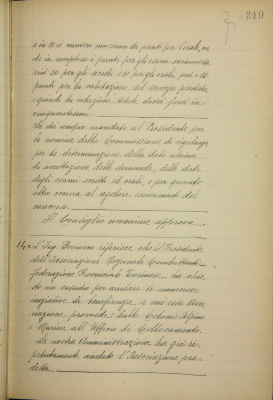 249
e in 10 il numero massimo di punti per l'orale, on
de in complesso i punti per gli esami saranno
così 30 per gli scritti e 10 per gli orali, più i 10
punti per la valutazione del servizio prestato,
e quindi la votazione totale dovrà farsi in
cinquantesimi.
Si dia ampio mandato al Presidente per
la nomina della Commissione di vigilanza,
per la determinazione della data ultima
di accettazione delle domande, delle date
degli esami scritti ed orali, e per quanto
altro occorra al regolare
concorso.
Il Consiglio unanime approva.
14° L'Ing. riferisce che il Presidente
dell'Associazione Nazionale Combattenti
Federazione Provinciale Torinese ha chie
sto un sussidio per aiutare le numerose
iniziative di beneficenza a cui essa Asso
ciazione provvede: dalle Colonie Alpine
e Marine all'Ufficio di Collocamento.
La nostra Amministrazione ha già ri
petutamente aiutato l'Associazione pre
detta